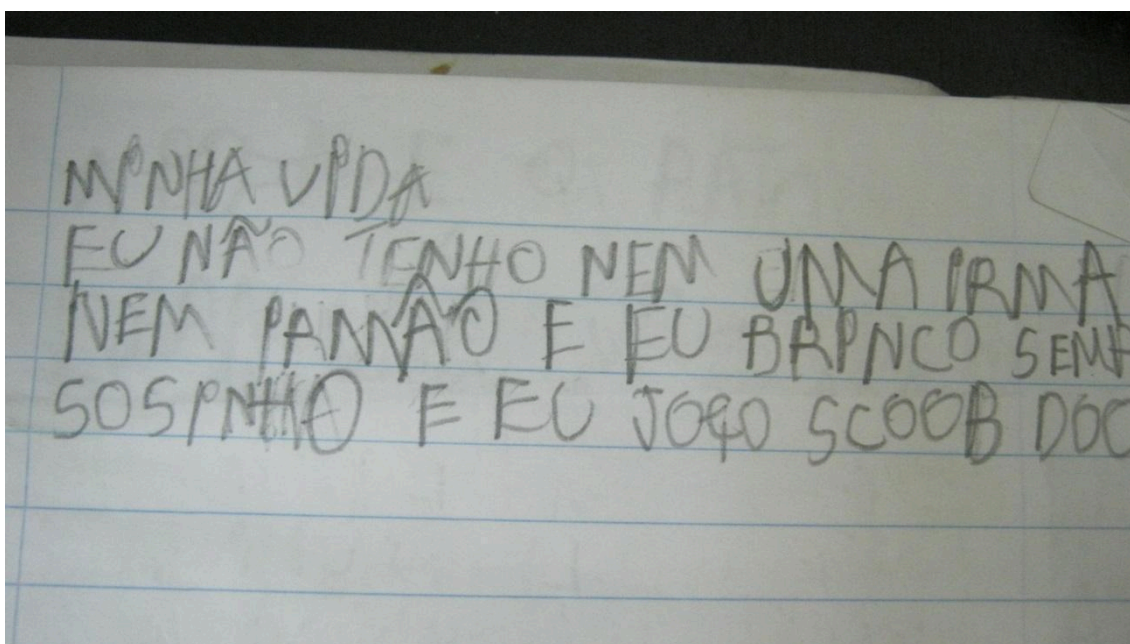 MINHA VIDA
EU NÃO TENHO NEM UMA IRMA
NEM IAMMÃO E EU BRINCO SEMP
SOSINHO E EU JOGO SCOOB DOO